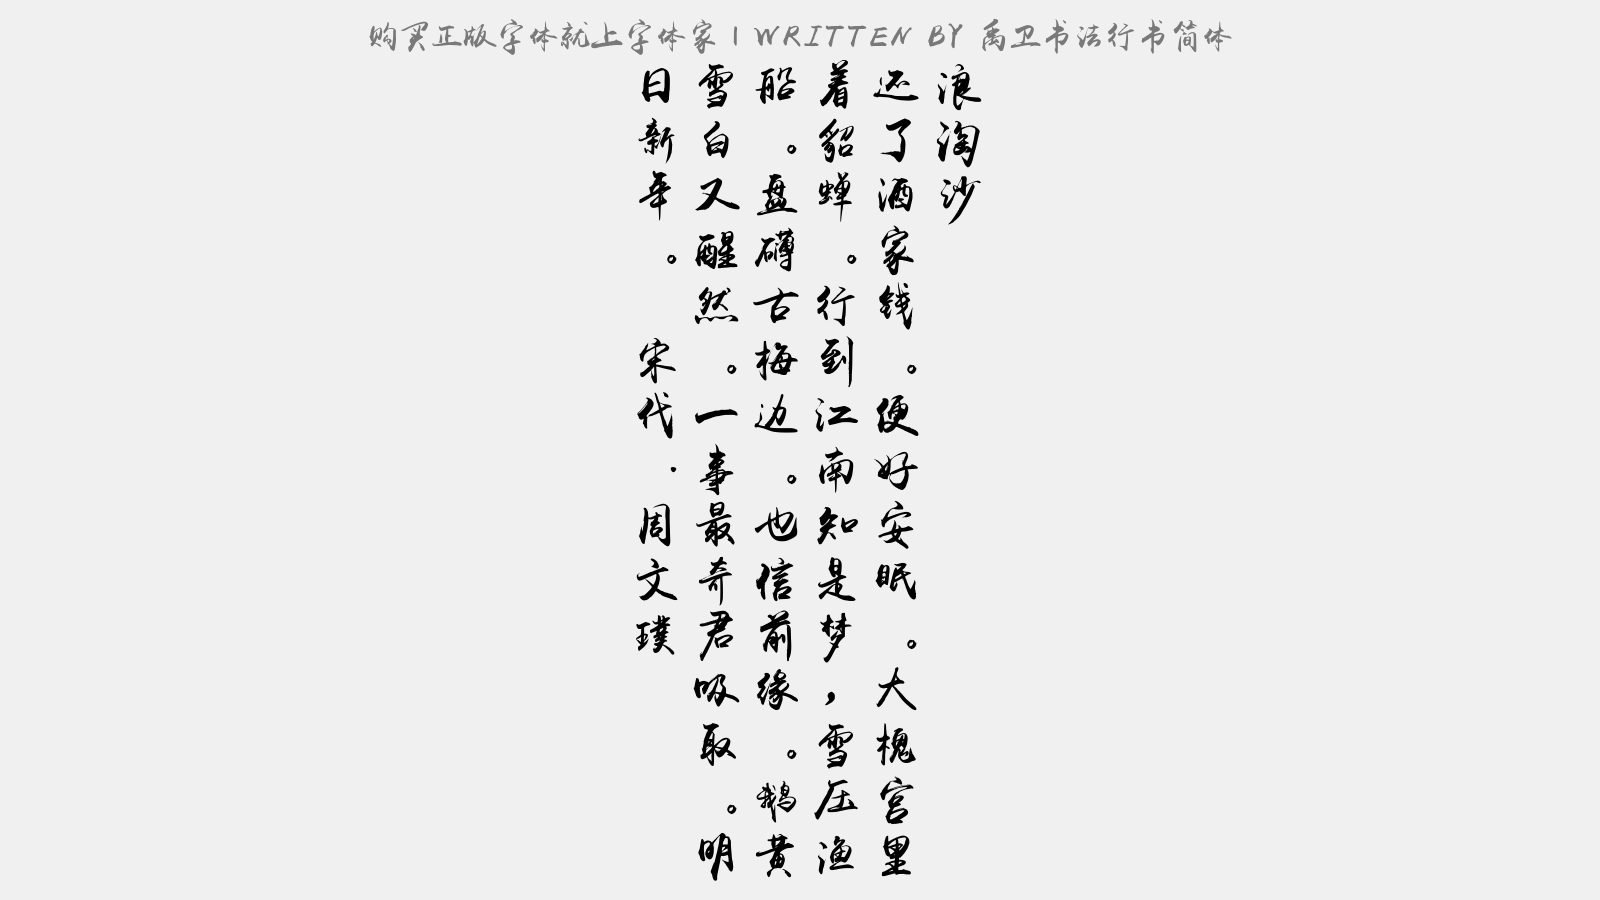 购买正版字体就上字体家 | WRITTEN BY 禹卫书法行书简体
浪淘沙
还了酒家钱。便好安眠。大槐宫里
着貂蝉。行到江南知是梦，雪压渔
船。盘礴古梅边。也信前缘。鹅黄
雪白又醒然。一事最奇君吸取。明
日新年。 宋代·周文璞